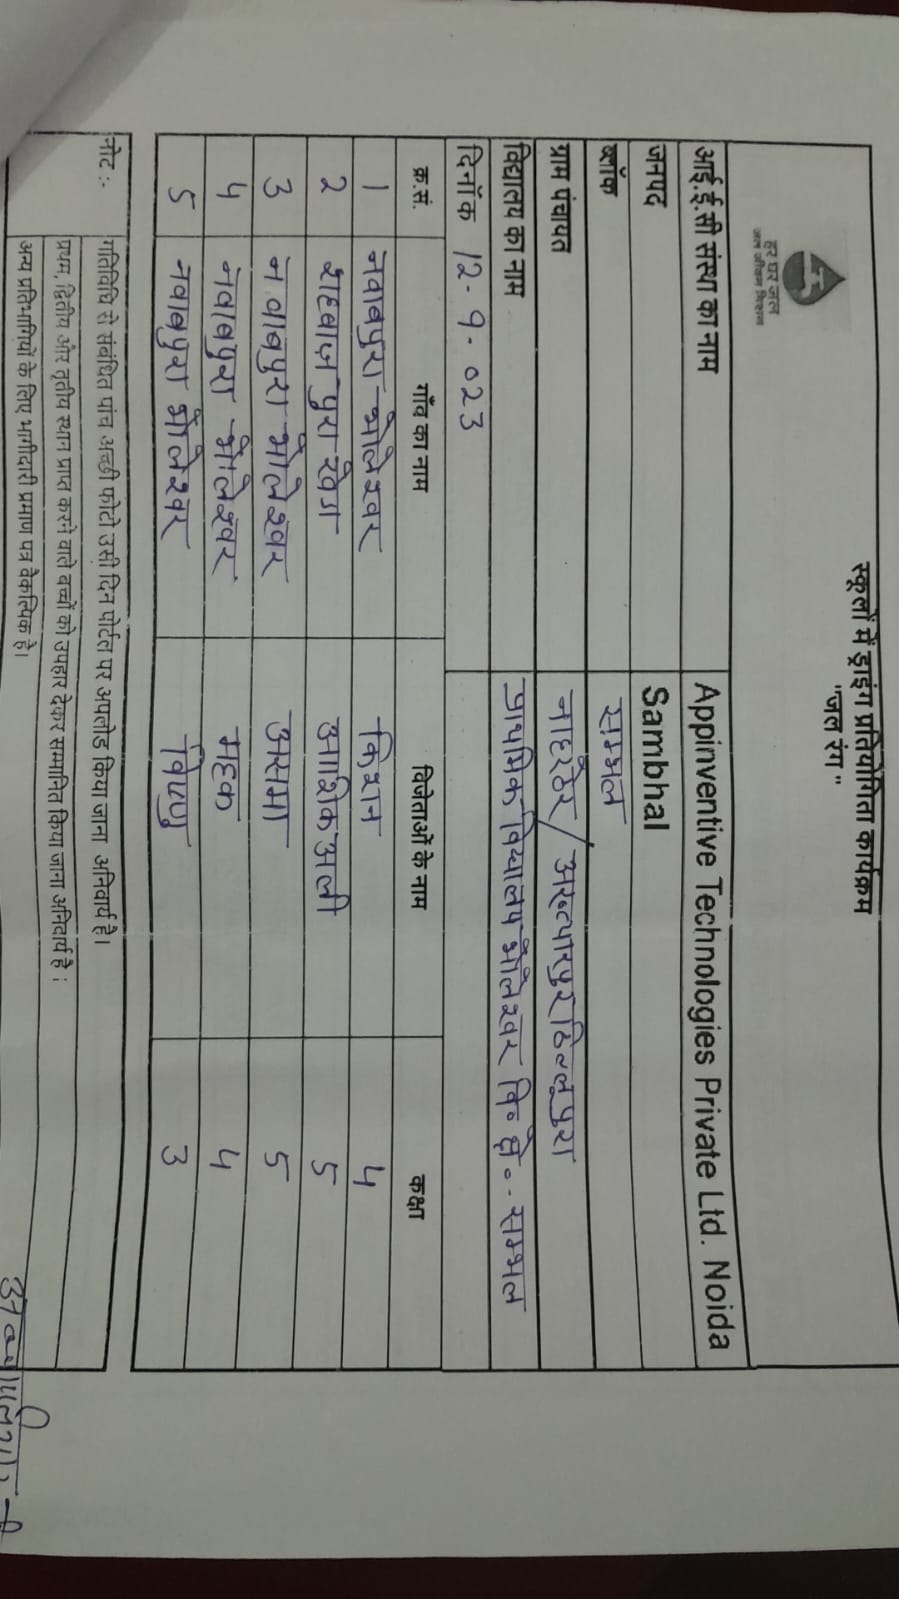 हर घर जल
जल जीवन मिशन
स्कूलों में ड्राइंग प्रतियोगिता कार्यक्रम
"जल रंग"
आई.ई.सी संस्था का नाम Appinventive Technologies Private Ltd. Noida
जनपद Sambhal
ब्लॉक सम्भल
ग्राम पंचायत नाहरठेर/अख्त्यारपुर ठिल्लूपुरा
विद्यालय का नाम प्राथमिक विद्यालय भोलेश्वर वि० क्षे०- सम्भल
दिनाँक 12-9-023
क्र.सं. गाँव का नाम विजेताओं के नाम कक्षा
1 नवाबपुरा भोलेश्वर किशन 4
2 शहबाजपुरा खेडा आशिक अली 5
3 नवाबपुरा भोलेश्वर असमा 5
4 नवाबपुरा भोलेश्वर महक 4
5 नवाबपुरा भोलेश्वर विष्णु 3
नोट :- गतिविधि से संबंधित पांच अच्छी फोटो उसी दिन पोर्टल पर अपलोड किया जाना अनिवार्य है।
प्रथम, द्वितीय और तृतीय स्थान प्राप्त करने वाले बच्चों को उपहार देकर सम्मानित किया जाना अनिवार्य है ।
अन्य प्रतिभागियों के लिए भागीदारी प्रमाण पत्र वैकल्पिक है।